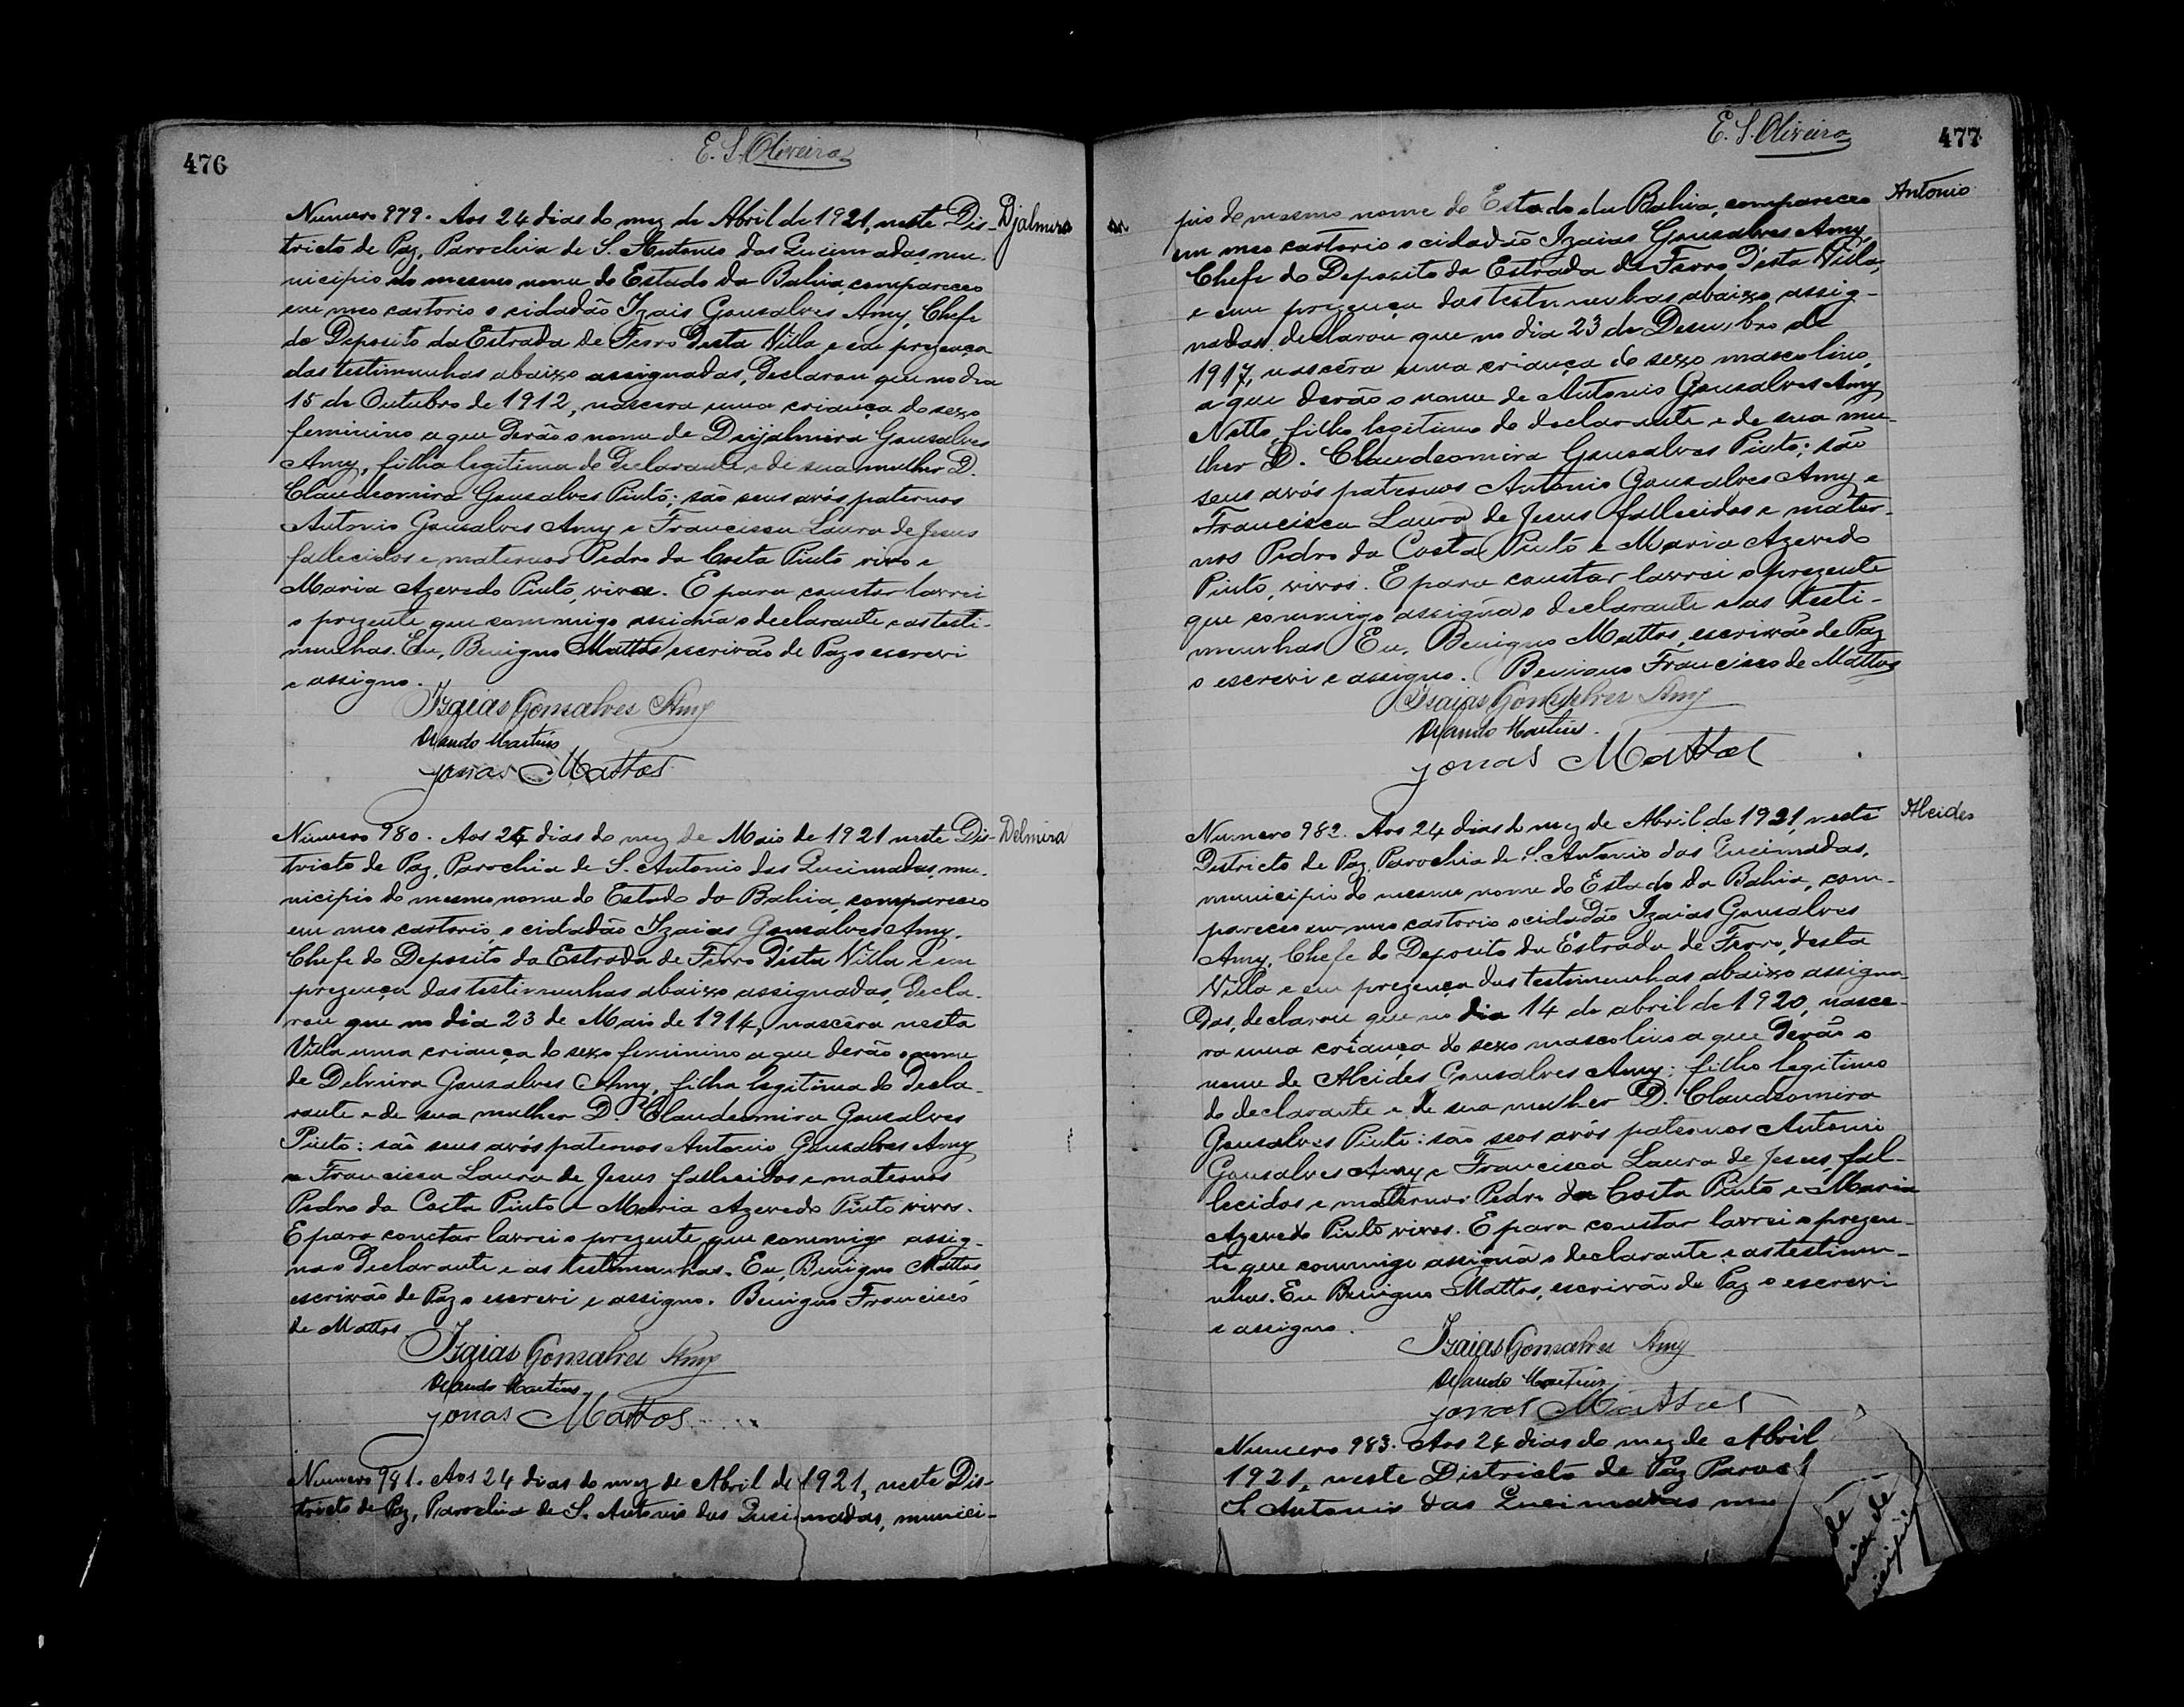 476
E. S. Oliveira
Numero 979. Aos 24 dias do mez de Abril de 1921, neste Dis-
Djalmira
tricto de Paz, Parochia de S. Antonio das Queimadas, mu-
nicipio do mesmo nome do Estado da Bahia, compareceo
em meo cartorio o cidadão Izais Gonsalves Amy, Chefe
do Deposito da Estrada de Ferro Desta Villa e em prezença
das testimunhas abaixo assignadas, Declarou que no dia
15 de Outubro de 1912, nascera uma criança do sexo
feminino a que derão o nome de Gonsalves
Amy, filha legitima do Declarante e de sua mulher D.
Claudeomira Gonsalves Pinto; são seus avós paternos
Antonio Gonsalves Amy e Francisca Laura de Jesus
fallecidos e maternos Pedro da Costa Pinto vivo e
Maria Azevedo Pinto, viva. E para constar lavrei
o prezente que commigo assignão o declarante e as testi-
munhas. Eu, Benigno Mattos, escrivão de Paz o escrevi
e assigno.
Izaias Gonsalves Amy
Martins
Jonas Mattos
Numero 980. Aos 24 dias do mez de Maio de 1921 neste Dis-
Delmira
tricto de Paz, Parochia de S. Antonio das Queimadas, mu-
nicipio do mesmo nome do Estado da Bahia, compareceo
em meo cartorio, o cidadão Izaias Gonsalves Amy,
Chefe do Deposito da Estrada de Ferro d'esta Villa e em
prezença das testimunhas abaixo assignadas, Decla-
rou que no dia 23 de Maio de 1914, nascêra nesta
Villa uma criança do sexo feminino a que derão o nome
de Delmira Gonsalves Amy, filha legitima do Decla-
rante e de sua mulher D. Claudeomira Gonsalves
Pinto: são seus avós paternos Antonio Gonsalves Amy
e Francisca Laura de Jesus fallecidos e maternos
Pedro da Costa Pinto e Maria Azevedo Pinto vivos.
E para constar lavrei o prezente que commigo assig-
na o Declarante e as testimunhas. Eu, Benigno Mattos
escrivão de Paz o escrevi e assigno. Benigno Francisco
de Mattos
Izaias Gonsalves Amy
Martins
Jonas Mattos
Numero 981. Aos 24 dias do mez de Abril de 1921, neste Dis-
tricto de Paz, Parochia de S. Antonio das Queimadas, munici-
E. S. Oliveira
477
Antonio
pio do mesmo nome do Estado da Bahia, compareceo
em meo cartorio o cidadão Izaias Gonsalves Amy,
Chefe do Deposito da Estrada de Ferro, D'esta Villa,
e em prezença das testimunhas abaixo assig-
nadas, declarou que no dia 23 de Desembro de
1917, nascêra uma criança do sexo mascolino,
a que derão o nome de Antonio Gonsalves Amy
Netto, filho legitimo do declarante e de sua mu-
lher D. Claudeomira Gonsalves Pinto; são
seus avós paternos Antonio Gonsalves Amy e
Francisca Laura de Jesus fallecidos e mater-
nos Pedro da Costa Pinto e Maria Azevedo
Pinto, vivos. E para constar lavrei o prezente
que commigo assignão o declarante e as testi-
munhas Eu, Benigno Mattos, escrivão de Paz
o escrevi e assigno. Benigno Francisco de Mattos
Izaias Gonsalves Amy
Martins
Jonas Mattos
Numero 982. Aos 24 dias do mez de Abril de 1921, neste
Alcides
Districto de Paz, Parochia de S. Antonio das Queimadas,
municipio do mesmo nome do Estado da Bahia, com-
pareceo em meo cartorio o cidadão Izaias Gonsalves
Amy, Chefe do Deposito da Estrada de Ferro, desta
Villa e em prezença das testimunhas abaixo assigna-
das, declarou que no dia 14 de abril de 1920, nasce-
ra uma criança do sexo mascolino a que derão o
nome de Alcides Gonsalves Amy; filho legitimo
do declarante e de sua mulher D. Claudeomira
Gonsalves Pinto: são seos avós paternos Antonio
Gonsalves Amy e Francisca Laura de Jesus, fal-
lecidos e maternos Pedro da Costa Pinto e Maria
Azevedo Pinto vivos. E para constar lavrei o prezen-
te que commigo assignão o declarante e as testimu-
nhas. Eu Benigno Mattos, escrivão de Paz o escrevi
e assigno.
Izaias Gonsalves Amy
Martins
Jonas Mattos
Numero 983. Aos 24 dias do mez de Abril de
1921, neste Districto de Paz Paroc
S. Antonio das Queimadas mu